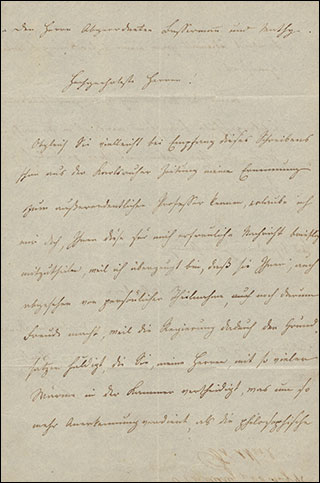 Den Herrn Abgeordneten Bassermann und Mathy.
Hochgeehrteste Herren.
Obgleich Sie vielleicht bei Empfang dieses Schreibens
schon aus der Karlsruher Zeitung meine Ernennung
zum außerordentlichen Professor kennen, erlaube ich
mir doch, Ihnen diese für mich erfreuliche Nachricht brieflich
mitzutheilen, weil ich überzeugt bin, daß sie Ihnen, auch
abgesehen von persönlicher Theilnahme auch noch darum
Freude macht, weil die Regierung dadurch den Grund
sätzen huldigt, die Sie, meine Herren mit so vieler
Wärme in der Kammer vertheidigt, was um so
mehr Anerkennung verdient, als die philosophische